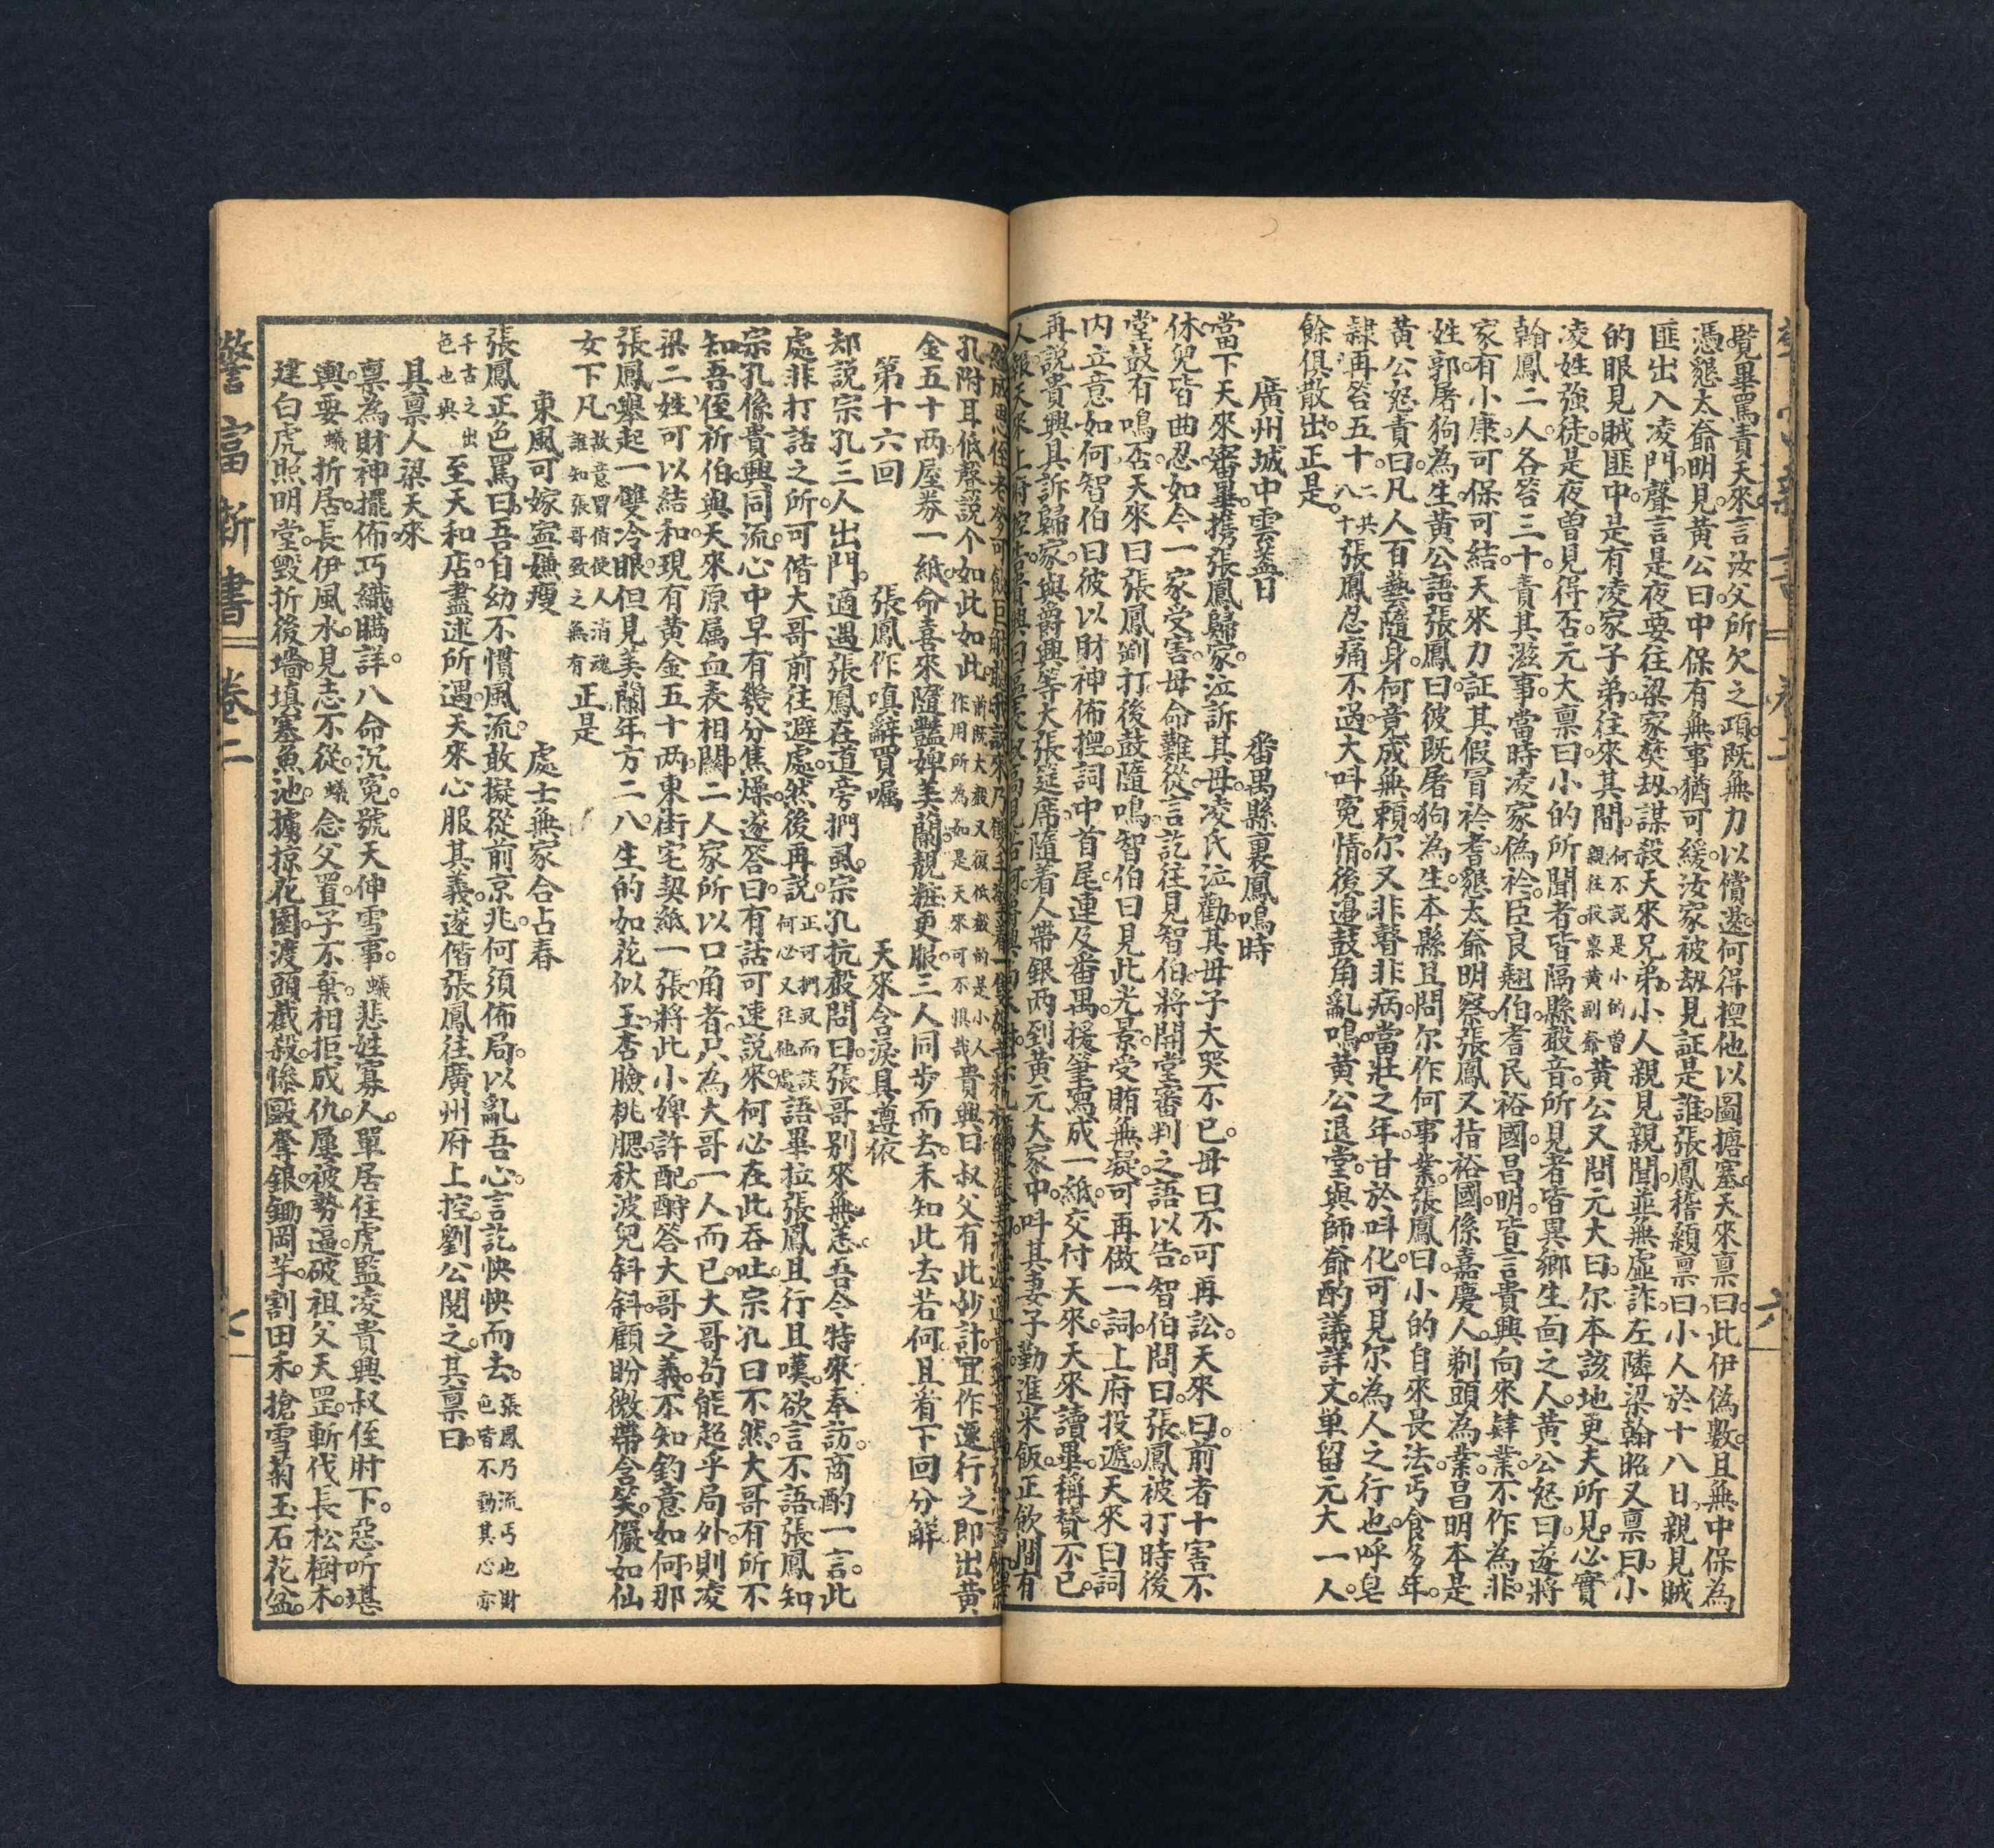 覽畢罵責天來言汝父所欠之項既無力以償還何得揑他以圖搪塞天來禀曰此伊偽數且無中保為
憑懇太爺明見黃公曰中保有無事猶可緩汝家被刼見証是誰張鳳稽顙禀曰小人於十八日親見賊
匪出入凌門聲言是夜要往梁家焚刼謀殺天來兄弟小人親見親聞並無虛詐左隣梁翰昭又禀曰小
的眼見賊匪中是有凌家子弟往來其間何不說是小的曾親往投禀黄副爺黃公又問元大曰尔本該地更夫所見必實
凌姓強徒是夜曾見得否元大禀曰小的所聞者皆隔縣聲音所見者皆異鄉生面之人黃公怒曰遂將
翰鳳二人各笞三十責其滋事當時凌家偽衿臣良翹伯耆民裕國昌明皆言貴興向來肆業不作為非
家有小康可保可結天來力証其假冒衿耆懇太爺明察張鳳又指裕國係嘉慶人剃頭為業昌明本是
姓郭屠狗為生黃公語張鳳曰彼既屠狗為生本縣且問尔作何事業張鳳曰小的自來長法丐食多年
黃公怒責曰凡人百藝隨身何竟成無賴尔又非瞽非病當壯之年甘於呌化可見尔為人之行也呼皂
隷再笞五十共二八十張鳳忍痛不過大呌寃情後邊鼓角亂鳴黃公退堂與師爺酌議詳文单留元大一人
餘俱散出正是
廣州城中雲蓋日　番禺縣裏鳳鳴時
當下天來審畢携張鳳歸家泣訴其母凌氏泣勸其母子大哭不已母曰不可再訟天來曰前者十害不
休兒皆曲忍如今一家受害母命難從言訖往見智伯將開堂審判之語以告智伯問曰張鳳被打時後
堂鼓有鳴否天來曰張鳳剛打後鼓隨鳴智伯曰見此光景受賄無疑可再做一詞上府投遞天來曰詞
内立意如何智伯曰彼以財神佈揑詞中首尾連及番禺援筆寫成一紙交付天來天來讀畢稱贊不已
再說貴興具訴歸家與爵興等大張筵席隨着人帶銀两到黃元大家中呌其妻子勤進米飯正飲間有
孔附耳低聲說个如此如此前既大截又復低截的是小人作用所為如是天來可不惧哉貴興曰叔父有此妙計宜作速行之即出黃
金五十两屋券一紙命喜來隨艷婢美蘭靚粧更服三人同步而去未知此去若何且看下回分解
第十六回　張鳳作嗔辭買囑　天來含淚具遵依
却說宗孔三人出門適遇張鳳在道旁捫虱宗孔抗聲問曰張哥別來無恙吾今特來奉訪商酌一言此
處非打話之所可偕大哥前往避處然後再說正可捫虱而談何必又往他處語畢拉張鳳且行且嘆欲言不語張鳳知
宗孔係貴興同流心中早有幾分焦燥遂答曰有話可速說來何必在此吞吐宗孔曰不然大哥有所不
知吾侄祈伯與天來原属血表相關二人家所以口角者只為大哥一人而已大哥苟能超乎局外則凌
梁二姓可以結和現有黄金五十两東街宅契紙一張將此小婢許配酧答大哥之義不知鈞意如何那
張鳳舉起一雙冷眼但見美蘭年方二八生的如花似玉杏臉桃腮秋波兒斜斜顧盼微帶含笑儼如仙
女下凡故意買俏使人消魂誰知張哥致之無有正是
東風可嫁寍嫌瘦　處士無家合占春
張鳳正色罵曰吾自幼不慣風流敢擬從前京兆何須佈局以亂吾心言訖怏怏而去張鳳乃流丐也財色皆不動其心亦
千古之出色也與至天和店盡述所遇天來心服其義遂偕張鳳往廣州府上控劉公閱之其禀曰
具禀人梁天來
禀為財神擺佈巧織瞞詳八命沉寃號天伸雪事蟻悲姓寡人單居住虎監凌貴興叔侄肘下惡听堪
輿要蟻折居長伊風水見志不從蟻念父置子不棄相拒成仇屢被勢逼破祖父天罡斬伐長松樹木
建白虎照明堂毀折後墻填塞魚池擄掠花園渡頭截殺慘毆奪銀鋤岡芋割田禾搶雪菊玉石花盆
警富新書　卷二